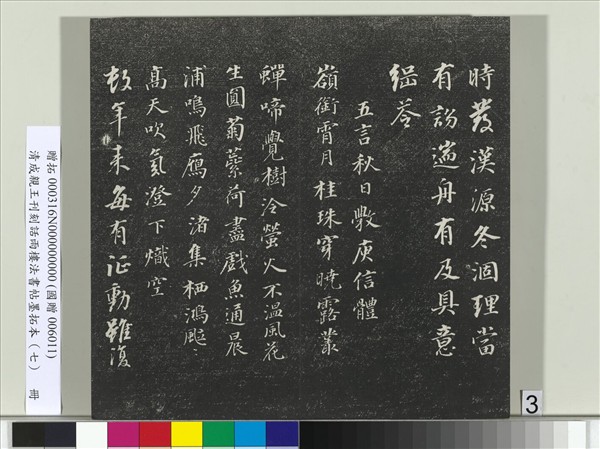 時發漢源冬涸理當
有遄舟有及具意
荅
五言秋日斆庾信體
嶺銜霄月桂珠穿曉露叢
蟬啼覺樹冷螢火不溫風花
生圓菊蘂荷盡戲魚通晨
浦鳴飛鴈夕渚集栖鴻颯〻
高天吹氛澄下熾空
年来每有征動雖復
贈拓 000316N000000000 (國贈 006011)
清成親王刊刻話雨樓法書帖墨拓本（七） 冊
3